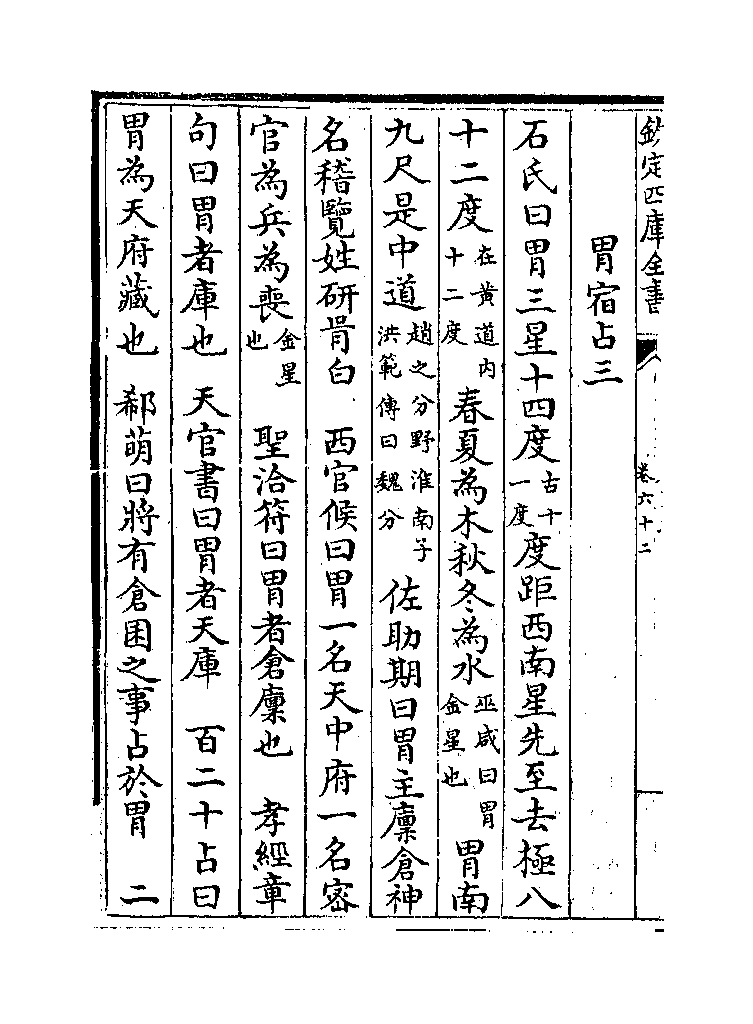 欽定四庫全書
卷六十二
胃宿占三
石氏曰胃三星十四度古十一度度距西南星先至去極八
十二度在黄道内十二度春夏為木秋冬為水巫咸曰胃金星也胃南
九尺是中道趙之分野淮南子洪範傳曰魏分佐助期曰胃主廩倉神
名稽覽姓研肯白　西官候曰胃一名天中府一名密
官為兵為喪金星也　聖洽符曰胃者倉廩也　孝經章
句曰胃者庫也　天官書曰胃者天庫　百二十占曰
胃為天府藏也　郗萌曰將有倉囷之事占於胃　二